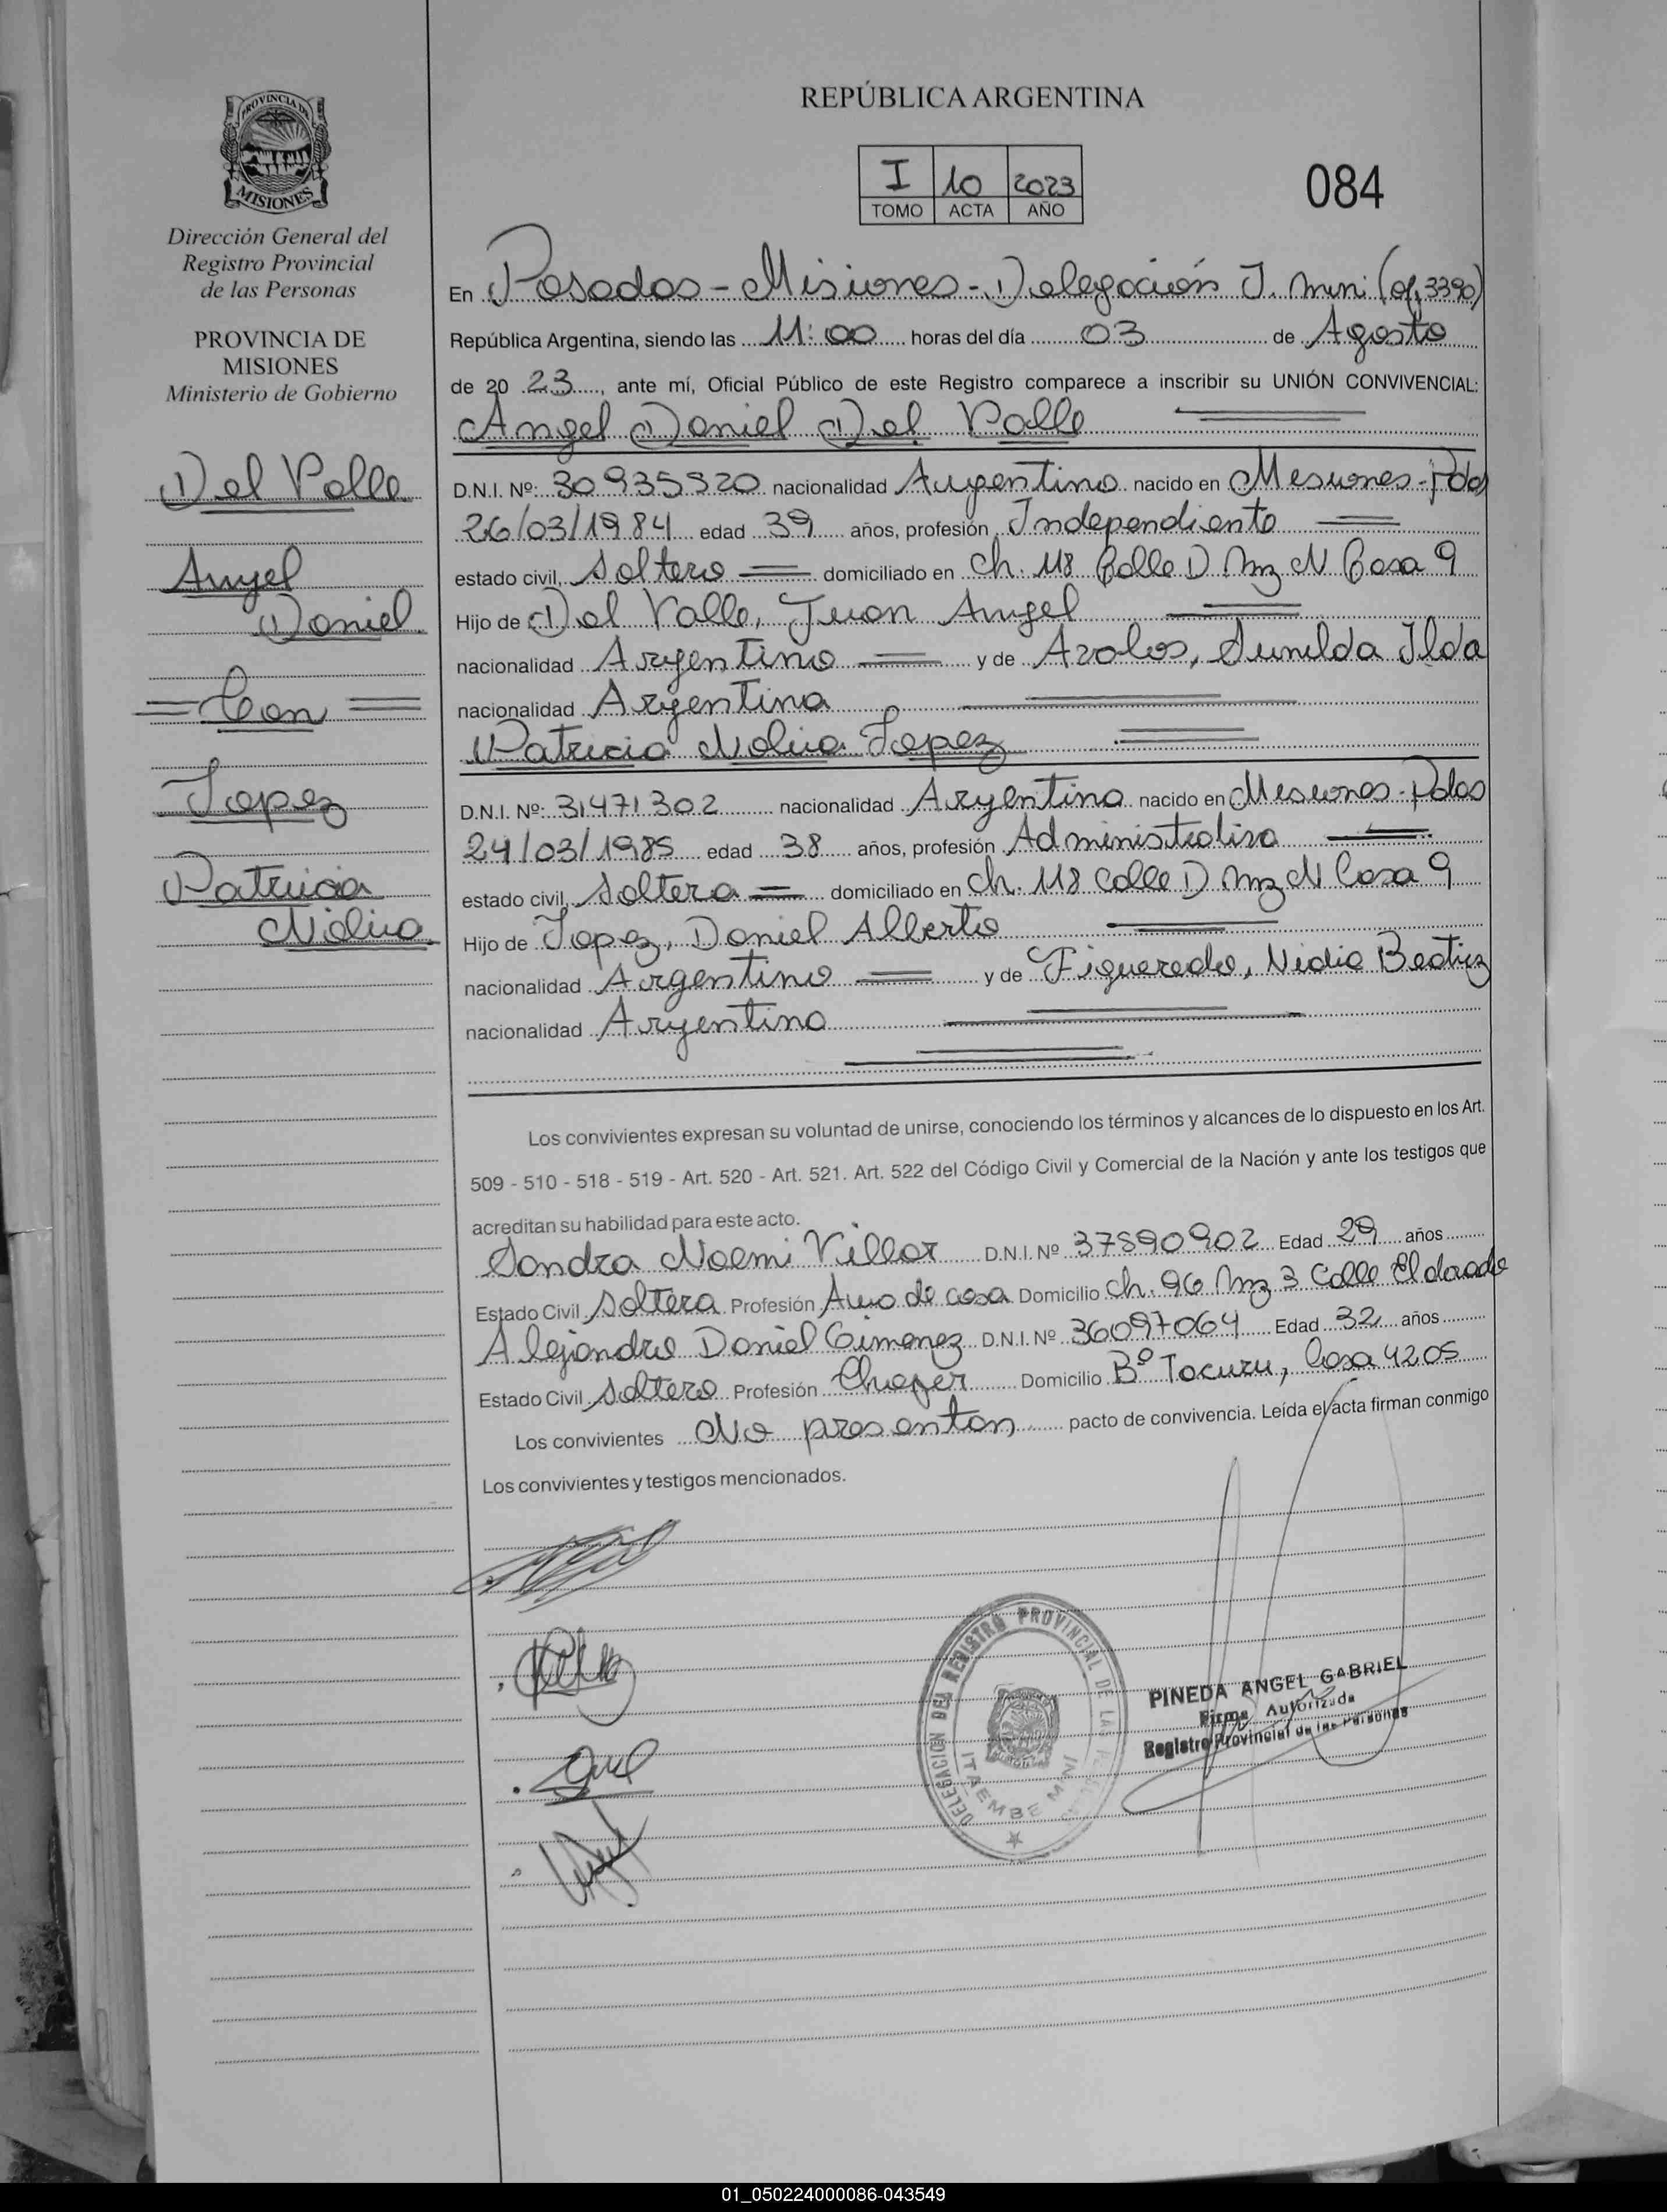 REPÚBLICA ARGENTINA
PROVINCIA DE
MISIONES
Dirección General del
Registro Provincial
de las Personas
PROVINCIA DE
MISIONES
Ministerio de Gobierno
Del Valle
Angel
Daniel
Con
Lopez
Patricia
Nolina
I 10 2023
TOMO ACTA AÑO
084
En Posadas - Misiones - Delegación I. Mini (of. 3390)
República Argentina, siendo las 11:00 horas del día 03 de Agosto
de 20 23, ante mí, Oficial Público de este Registro comparece a inscribir su UNIÓN CONVIVENCIAL:
Angel Daniel Del Valle
D.N.I. Nº: 30935520 nacionalidad Argentino nacido en Misiones - Pdas
26/03/1984 edad 39 años, profesión Independiente
estado civil, Soltero domiciliado en Ch. 118 Calle D Mz N Casa 9
Hijo de Del Valle, Juan Angel
nacionalidad Argentino y de Avalos, Sunilda Ilda
nacionalidad Argentina
Patricia Lopez
D.N.I. Nº: 31471302 nacionalidad Argentina nacido en Misiones - Pdas
24/03/1985 edad 38 años, profesión Administrativa
estado civil, Soltera domiciliado en Ch. 118 Calle D Mz N Casa 9
Hijo de Lopez, Daniel Alberto
nacionalidad Argentino y de Figueredo, Nidia Beatriz
nacionalidad Argentina
Los convivientes expresan su voluntad de unirse, conociendo los términos y alcances de lo dispuesto en los Art.
509 - 510 - 518 - 519 - Art. 520 - Art. 521. Art. 522 del Código Civil y Comercial de la Nación y ante los testigos que
acreditan su habilidad para este acto.
Sandra Noemi Villar D.N.I. Nº 37590902 Edad 29 años
Estado Civil Soltera Profesión Ama de casa Domicilio Ch. 96 Mz 3 Calle Eldorado
Alejandro Daniel Gimenez D.N.I. Nº 36097064 Edad 32 años
Estado Civil Soltero Profesión Chofer Domicilio Bº Tacuru, Casa 4205
Los convivientes No presentan, pacto de convivencia. Leída el acta firman conmigo
Los convivientes y testigos mencionados.
DELEGACION DEL REGISTRO PROVINCIAL DE LAS
ITAEMBE MINI
PINEDA ANGEL GABRIEL
Firma Autorizada
Registro Provincial de las Personas
01_050224000086-043549